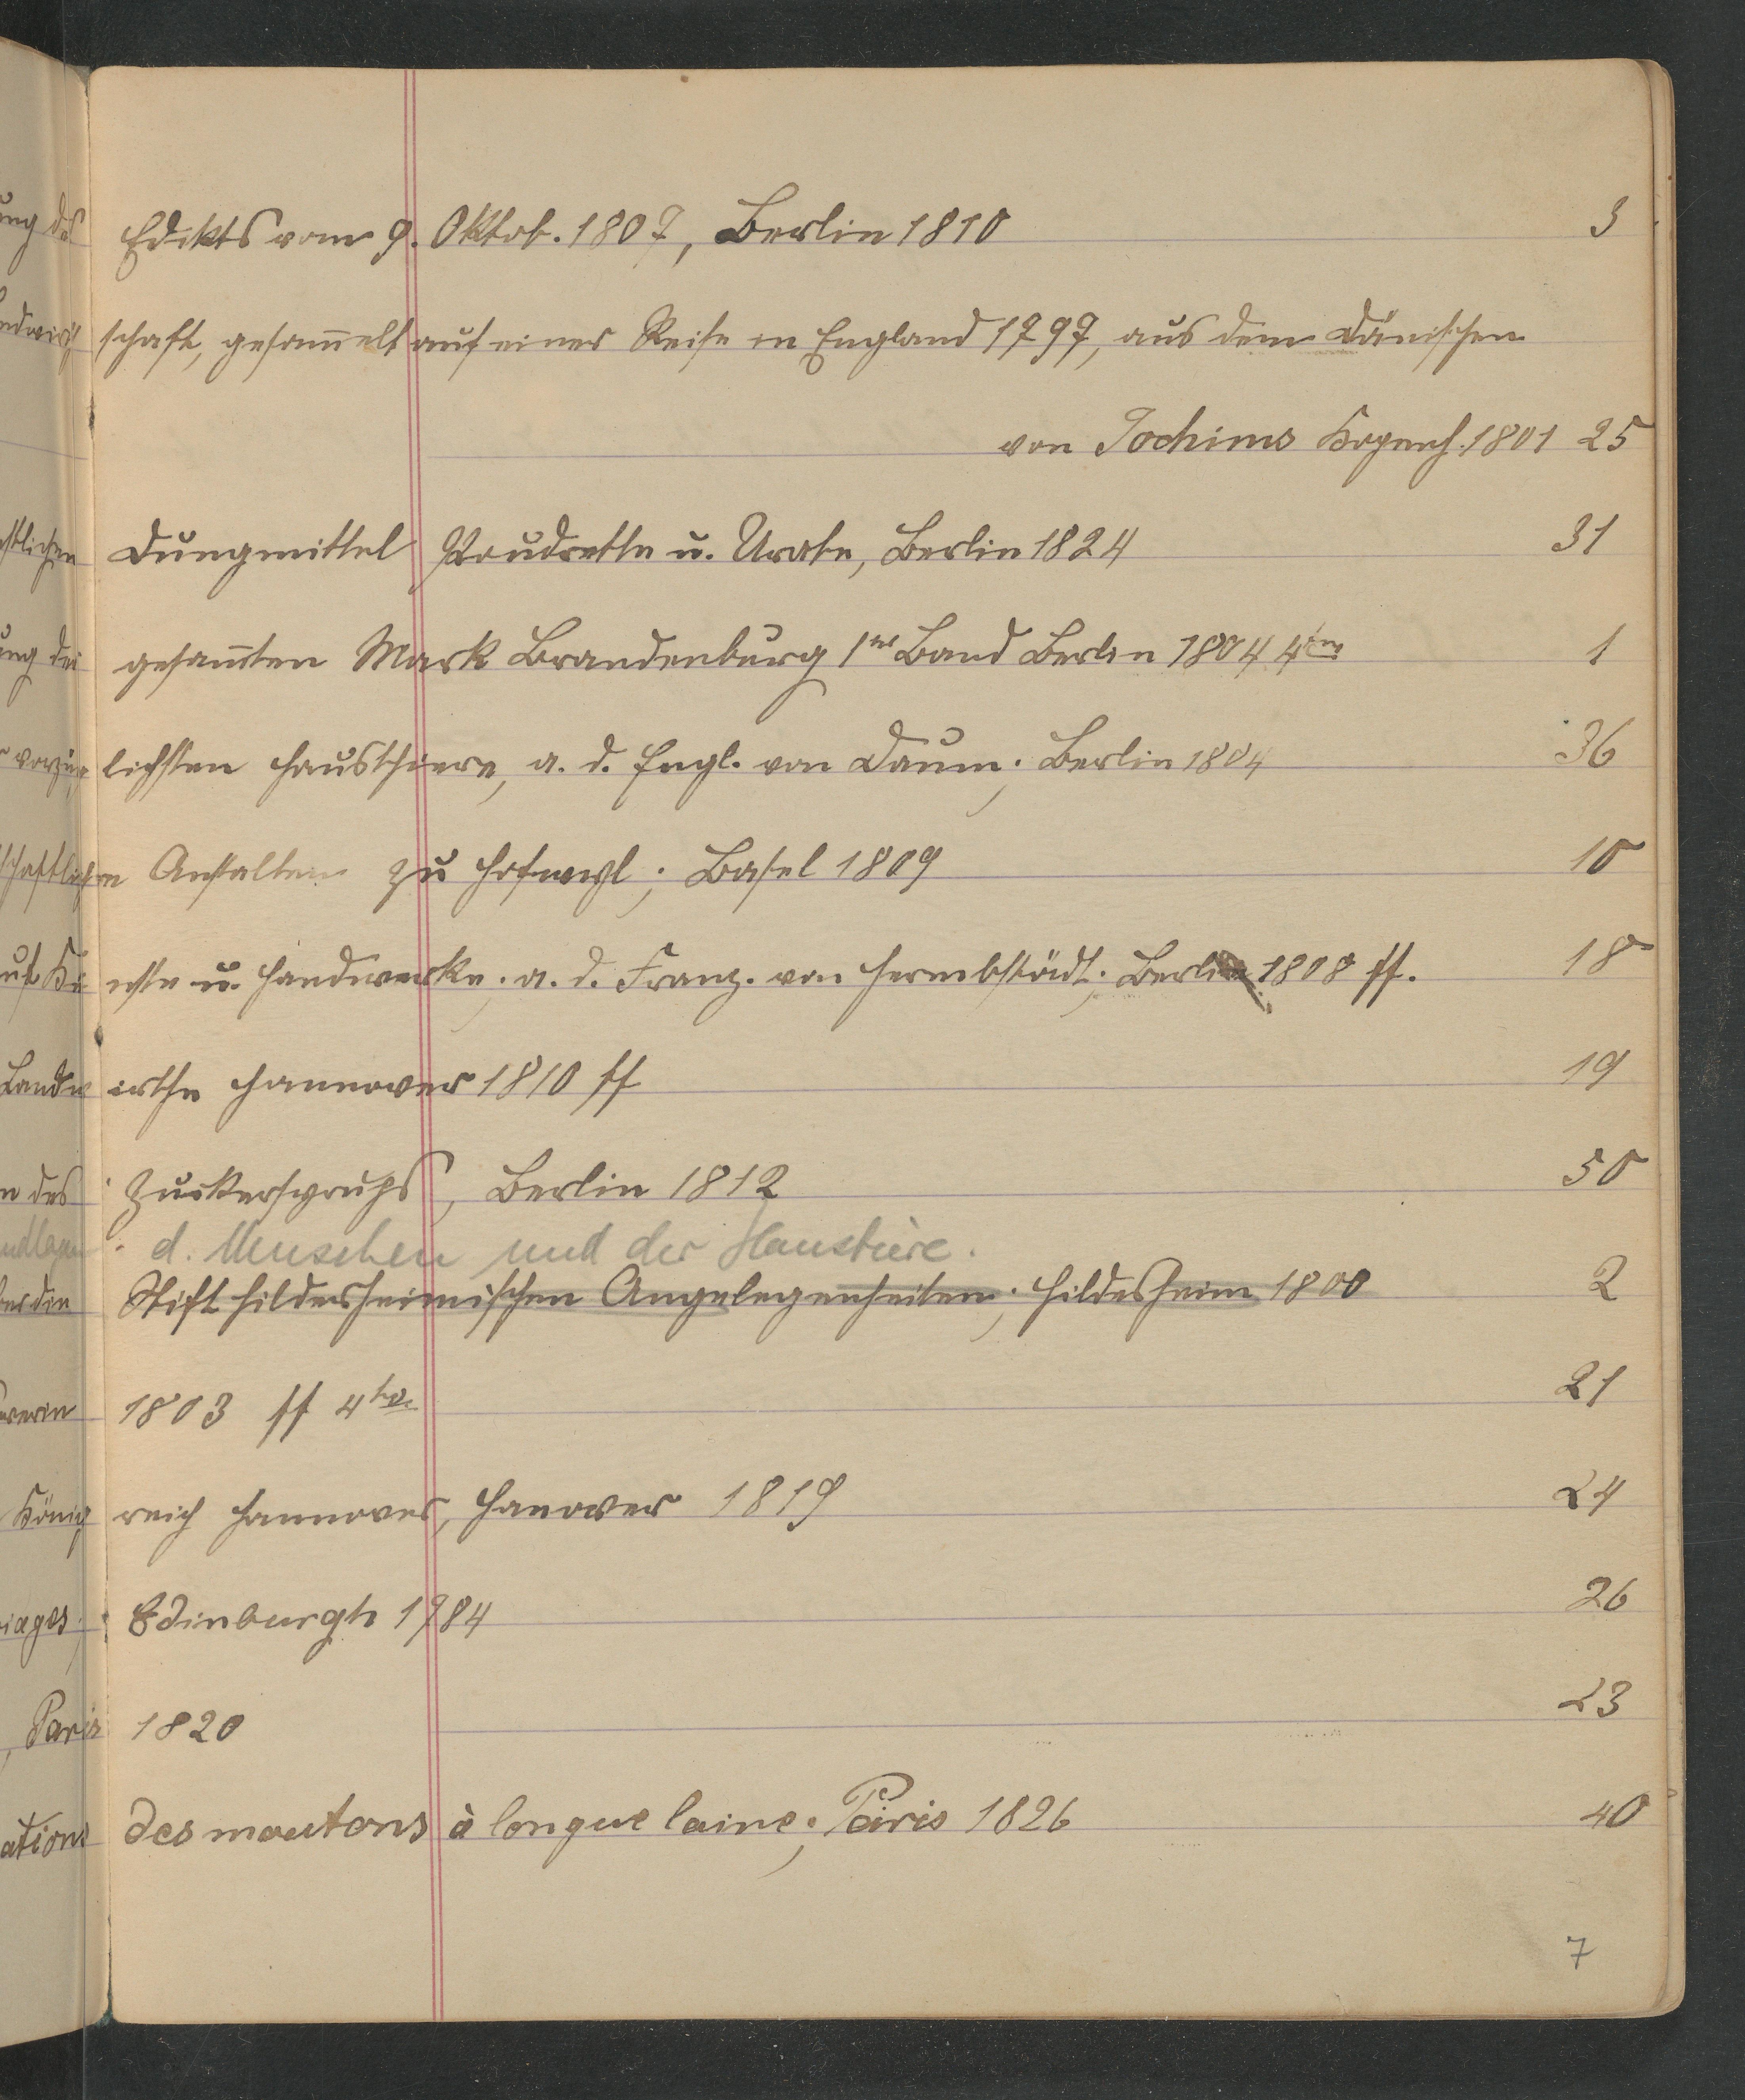 ung des Edikts vom 9. Oktob. 1807, Berlin 1810 3
ndwirt schaft, gesam̅elt auf einer Reise in England 1797, aus dem Dänischen
von Jochims Kopenh. 1801 25
stlichen Dungmittel Poudrette u. Urate, Berlin 1824 31
ung der gesam̅ten Mark Brandenburg 1ter Band Berlin 1804 4to 1
r vorzüg lichsten Hausthiere, a. d. Engl. von Daum; Berlin 1804 36
schaftlichen Anstalten zu Hofwyl; Basel 1809 10
uf Kü nste u. Handwerke; a. d. Franz. von Hermbstädt; Berlin 1808 ff. 18
Landw irthe Hannover 1810 ff 19
n des Zuckersyrups, Berlin 1812 50
ndlagen d. Menschen und der Haustiere.
ber die Stift Hildesheimischen Angelegenheiten; Hildesheim 1800 2
werin 1803 ff 4to 21
König reich Hannover, Hanover 1819 24
riages; Edinburgh 1784 26
, Paris 1820 23
ations des moutons à longue laine; Paris 1826 40
7